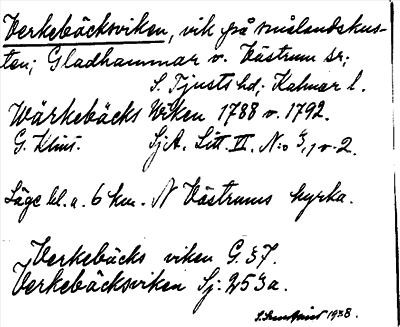 Verkebäcksviken, vik på smålandskus-
ten; Gladhammar o. Västrum sr;
S. Tjusts hd; Kalmar l.
Wärkebäcks Wiken 1788 o. 1792.
G. Klint. SjA. Litt. II. N:o 3,1 o. 2.
Läge bl. a. 6 km. N Västrums kyrka.
Verkebäcks viken G. 37.
Verkebäcksviken Sj: 253a.
1938.